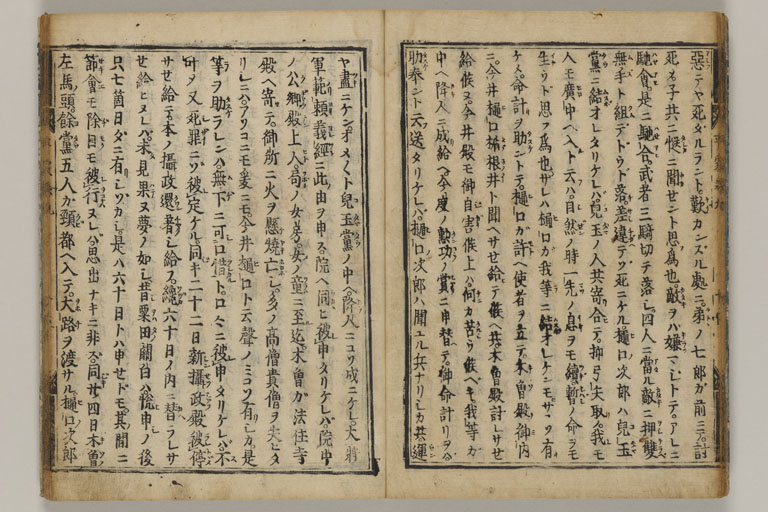 惡テヤ死ダルラント。歎カンズル處ニ。弟ノ七郎ガ前ニテ。討
死メ子共ニ慥ニ聞セント思爲也。敵ヲバ嫌マジトテ。アレニ
馳會。是ニ馳合。武者三騎切テ落シ。四人ニ當ル敵ニ押雙
無手ト組テドウド落。差違テゾ死ニケル樋口次郎ハ兒玉
黨ニ結オレタリケレバ。兒玉ノ人共寄合テ。抑弓矢取我モ
人モ廣中ヘ入ト云ハ。自然ノ時一先ノ息ヲモ續。暫ノ命ヲモ
生ウド思フ爲也。サレハ樋口カ我等ニ結オレケンモ。サコソ有
ケメ。命計ヲ助ントテ。樋口カ許ヘ使者ヲ立テ。木曾殿御内
ニ。今井樋口楯根井ト聞ヘサセ給テ候ヘ共。木曾殿討レサセ
給候ヌ。今井殿モ御自害候上ハ。何カ苦ウ候ヘキ。我等カ
中ヘ降人ニ成給ヘ。今度ノ勲功ノ賞ニ申替テ。御命計リヲハ
助奉ント云送タリケレバ。樋口次郎ハ聞ユル兵ナリシカ共。運
ヤ盡ニケン。オメ〳〵ト兒玉黨ノ中ヘ降人ニコソ成ニケレ。大將
軍範頼義經ニ此由ヲ申ス。院ヘ伺ヒ被申タリケレバ。院中
ノ公卿殿上人。局ノ女房。女ノ童ニ至迄。木曾カ法住寺
殿ヘ寄テ。御所ニ火ヲ懸燒亡シ。多ノ高僧貴僧ヲ失ヒタ
リシニハ。アソコニモ爰ニモ今井樋口ト云聲ノミコソ有シカ。是
等ヲ助ラレンハ。無下ニ可口惜ト。口々ニ被申タリケレバ。不
叶。又死罪ニソ被定ケル。同キ二十二日新攝政殿被停
サセ給テ。本ノ攝政還著シ給フ。纔六十日ノ内ニ替ラレサ
セ給ヒヌレバ。未見果ヌ夢ノ如シ。昔粟田關白ハ悅申ノ後
只七箇日ダニ有シゾカシ。是ハ六十日トハ申セドモ。其間ニ
節會モ除目モ被行ヌレバ。思出ナキニ非ズ。同廿四日木曾
左馬頭。餘黨五人カ頸都ヘ入テ。大路ヲ渡サル。樋口次郎